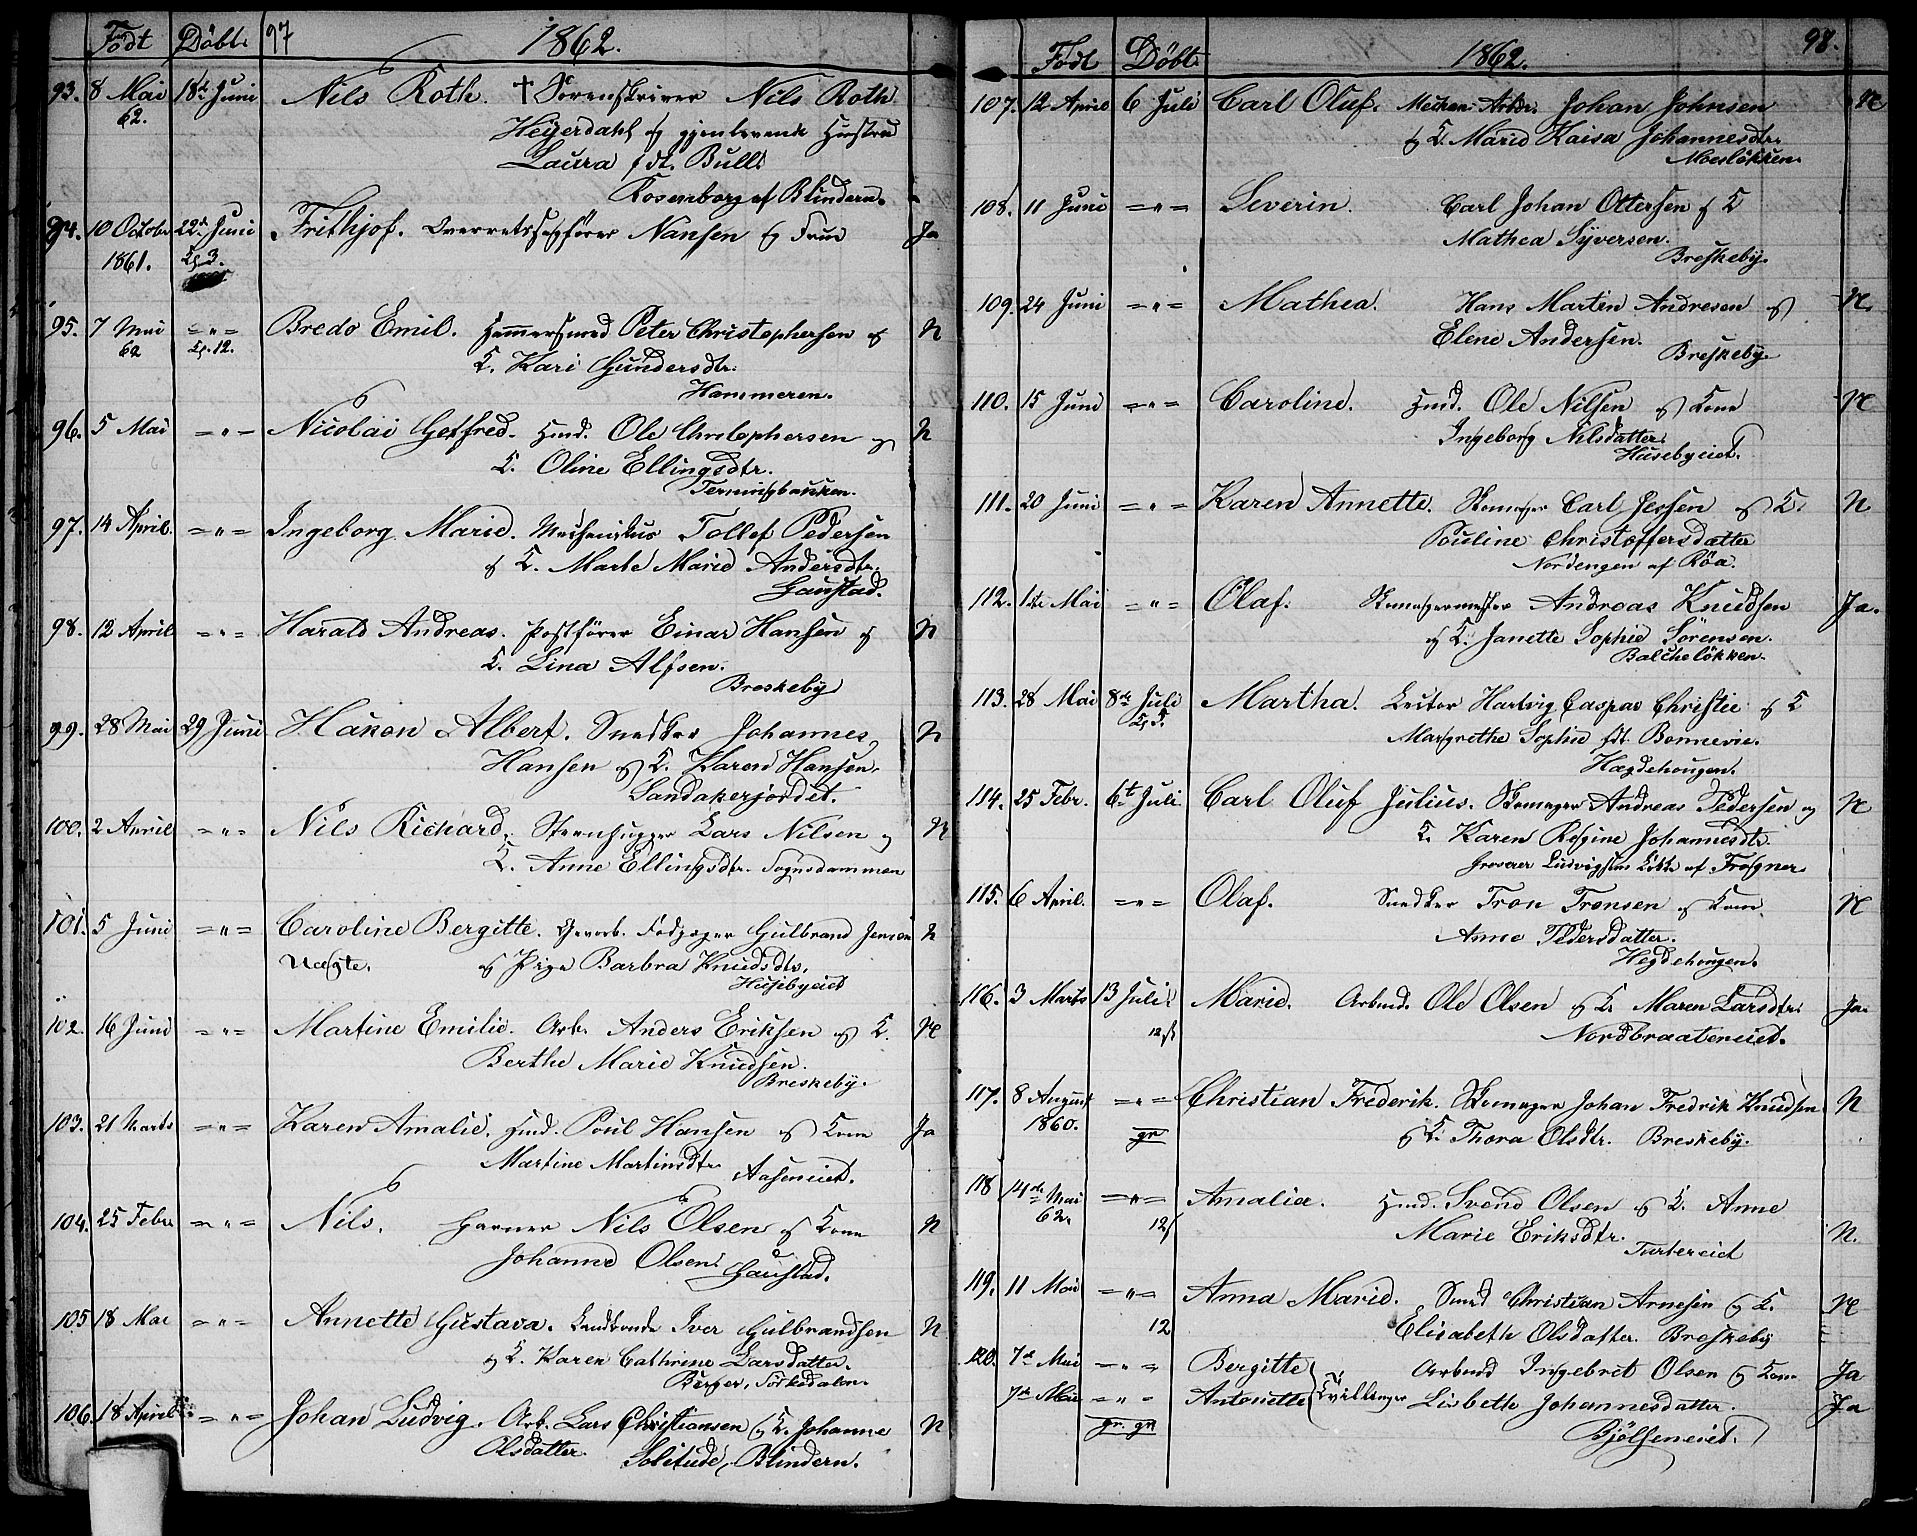 Födt Döbt 97 1862.
93. 8 Mai 18de Juni Nils Roth. † Sorenskriver Nils Roth
62. Heyerdahl og gjenlevende Hustru
Laura fdt. Bull.
Rosenborg af Blindern.
94. 10 Octobr 22de Juni Frithjof. Overretssagfører Nansen og Frue Ja
1861. Kl. 3.
95. 7 Mai = " = Bredo Emil. Hammersmed Peter Christophersen og N
62 Kl. 12. K. Kari Gundersdtr.
Hammeren.
96. 5 Mai = " = Nicolai Getfred. Husmd. Ole Christophersen og N
K. Oline Ellingsdtr.
97. 14 April. = " = Ingeborg Marie. Mechanikus Tollef Pedersen
og K. Marte Marie Andersdtr.
Gaustad.
98. 12 April = " = Harald Andreas. Postfører Einar Hansen og N
K. Lina Alfsen.
Breskeby
99. 28 Mai 29 Juni Hakon Albert. Snedker Johannes N
Hansen og K. Karen Hansen.
Sandakerjordet.
100. 2 April = " = Nils Richard. Steenhugger Lars Nilsen og N
K. Anne Ellingsdtr. Sognsdammen
101. 5 Juni = " = Caroline Bergitte. Gevorb. Fodjæger Gulbrand Jensen N
Uægte. og Pige Barbra Knudsdtr.
Husebyeiet
102. 16 Juni = " = Martine Emilie. Arb. Anders Eriksen og K. N
Berthe Marie Knudsen.
Breskeby.
103. 21 Marts = " = Karen Amalie. Husmd. Poul Hansen og Kone Ja
Martine Martinsdtr. Aaseneiet.
104. 25 Febr. = " = Nils. Garver Nils Olsen og Kone N
Johanne Olsen. Gaustad.
105 18 Mai = " = Annette Gustava. Landhandler Iver Gulbrandsen N
og K. Karen Cathrine Larsdatter.
Berger, Sörkedalen.
106. 18 April = " = Johan Ludvig. Arb. Lars Christiansen og K. Johanne N
Olsdatter. Solitude, Blindern.
Födt Döbt. 1862. 98.
107. 12 April 6 Juli Carl Oluf. Mechan. Arbdr. Johan Johnsen N
og K. Marie Kaisa Johannesdtr.
108. 11 Juni = " = Severin. Carl Johan Ottersen og K
Mathea Syversen.
Breskeby.
109. 24 Juni = " = Mathea. Hans Martin Andresen og N.
Elene Andersen.
Breskeby.
110. 15 Juni = " = Caroline. Husmd. Ole Nilsen og Kone N
Ingeborg Nilsdatter.
Husebyeiet.
111. 20 Juni = " = Karen Annette. Skomager Carl Jessen og K. N
Pouline Christoffersdatter
Nordengen af Röa.
112. 1ste Mai = " = Olaf. Skomagermester Andreas Knudsen Ja.
og K. Janette Sophie Sørensen.
Balcheløkken.
113. 28 Mai 8de Juli Martha. Lector Hartvig Caspar Christie og K
Margrethe Sophie fdt. Bonnevie.
Hægdehougen.
114. 25 Febr. 6te Juli Carl Oluf Julius. Skomager Andreas Pedersen og N
K. Karen Regine Johannesdtr.
Grosserer Ludvigsens Løkke af Frogner.
115. 6 April. = " = Olaf. Snedker Tron Tronsen og Kone N
Anne Pedersdatter.
Hegdehougen.
116. 3 Marts 13 Juli. Marie. Arbmd. Ole Olsen og K. Maren Larsdtr. Ja.
12 ß Nordbraateneiet.
117. 8 August = " = Christian Frederik. Skomager Johan Fredrik Knudsen N
1860. gr og K. Thora Olsdtr. Breskeby.
118 14de Mai = " = Amalia. Husmd. Svend Olsen og K. Anne
62. 12 ß Marie Eriksdtr. N.
Turtereiet
119. 11 Mai = " = Anna Marie. Smed Christian Arnesen og K. N
12 Elisabeth Olsdatter. Breskeby
120. 7de Mai = " = Bergitte Arbmd Ingebret Olsen og Kone Ja
7de Mai = " = Antonette Tvillinger Lisbeth Johannesdatter. Ja
gr. gr Bjølseneiet.